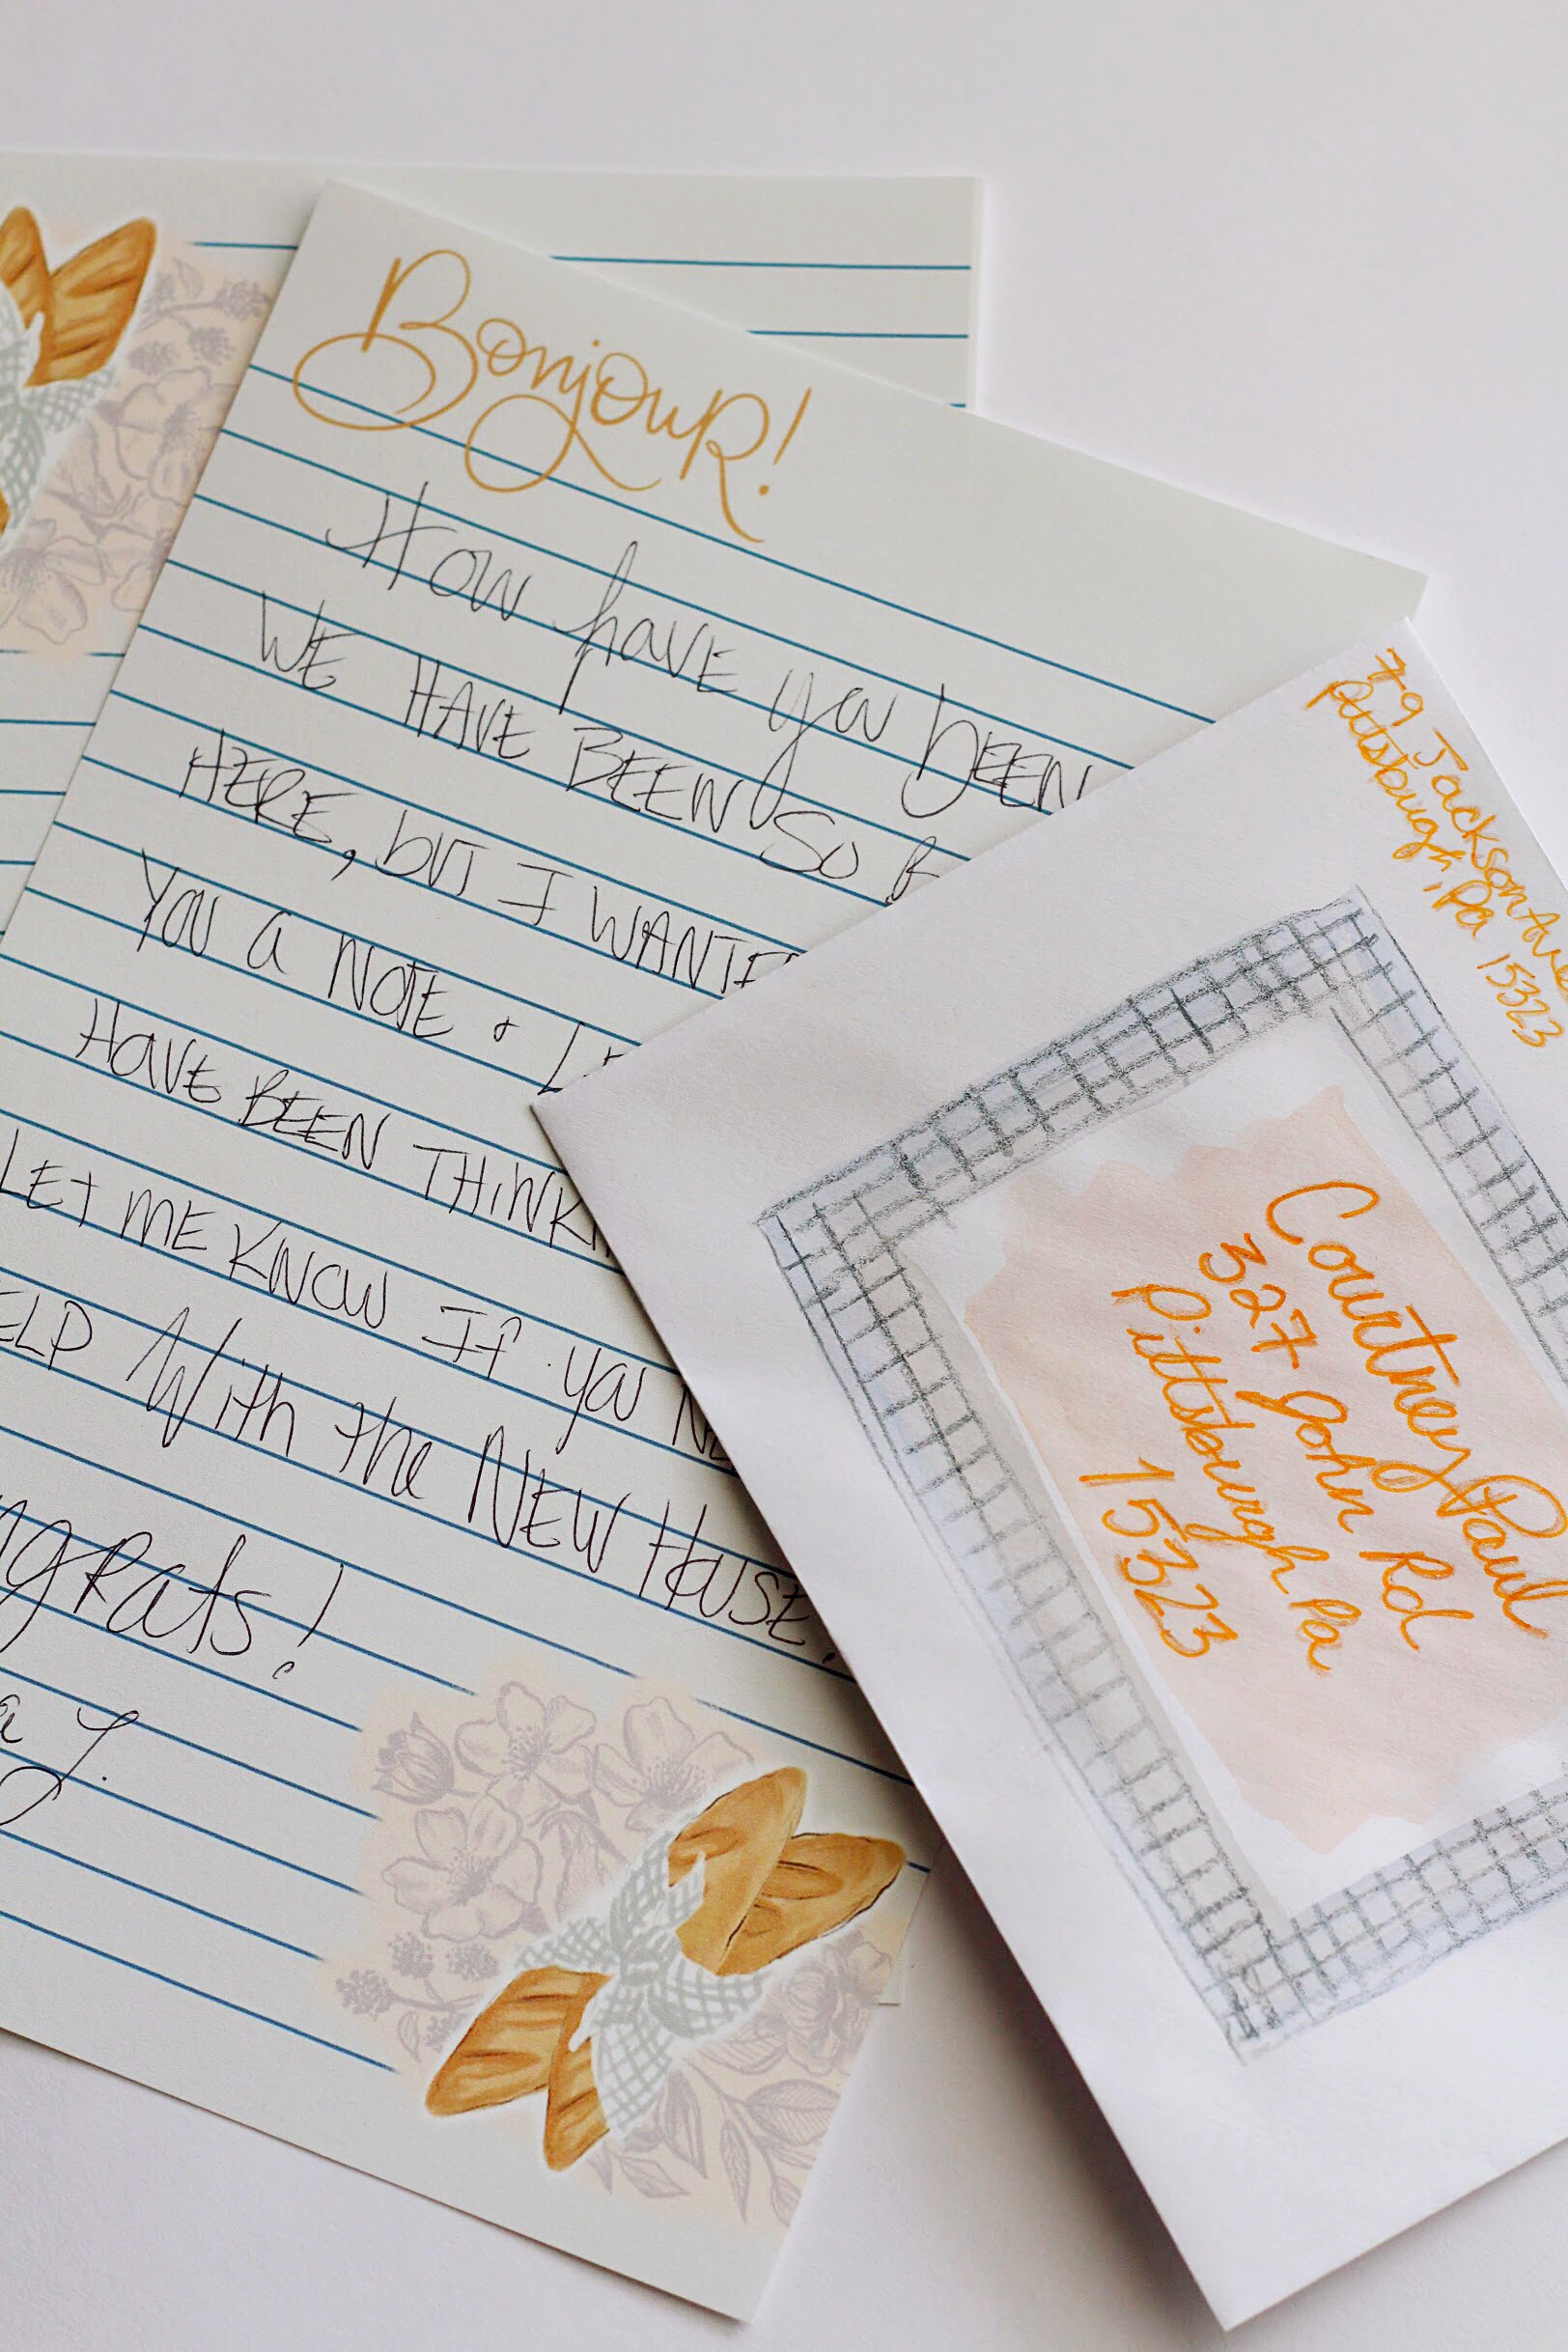 Bonjour!
How have you been
WE HAVE BEEN SO
HERE, but I WANTE
YOU a NOTE &
HAVE BEEN THINK
LET ME KNOW IF you
ELP With the NEW HOUSE.
ngrats!
a J.
79 Jackson Ave
Pittsburgh, Pa 15323
Courtney Paul
327 John Rd
Pittsburgh Pa
15323